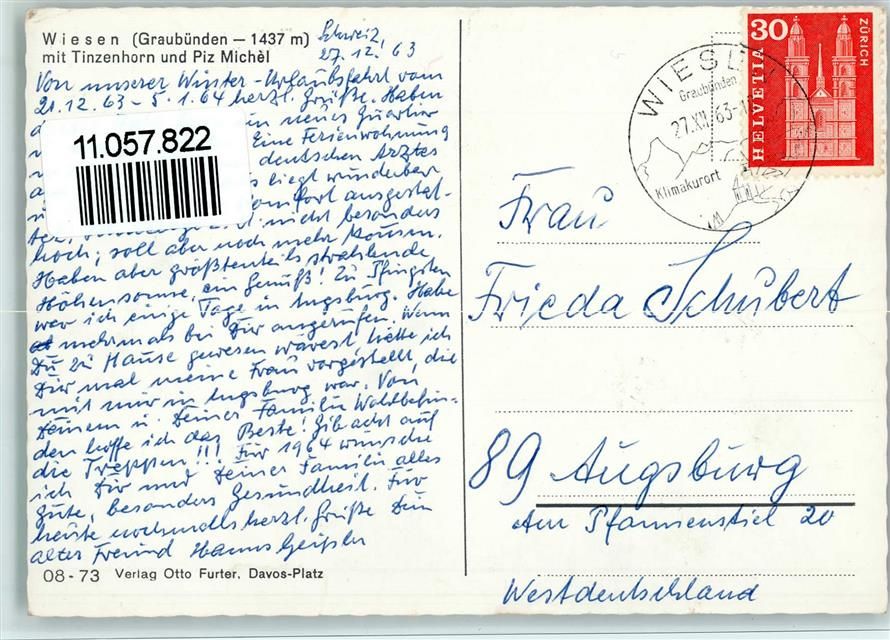 Wiesen (Graubünden — 1437 m)
mit Tinzenhorn und Piz Michèl
Schweiz,
27.12.63
Von unserer Winter-Urlaubsfahrt vom
21.12.63 - 5.1.64 herzl. Grüße. Haben
ein neues Quartier
Eine Ferienwohnung
deutschen Arztes
liegt wunderbar
Komfort ausgestat-
tet, nicht besonders
hoch, soll aber noch mehr kommen.
Haben aber größtenteils strahlende
Höhensonne, ein Genuß! Zu Pfingsten
war ich einige Tage in Augsburg. Habe
mehrmals bei Dir angerufen. Wenn
Du zu Hause gewesen wärest, hätte ich
Dir mal meine Frau vorgestellt, die
mit mir in Augsburg war. Von
Deinem u. Deiner Familie Wohlbefin-
den hoffe ich das Beste! Gib acht auf
die Treppen!!! Für 1964 wünsche
ich Dir und Deiner Familie alles
Gute, besonders Gesundheit. Für
heute nochmals herzl. Grüße Dein
alter Freund Hanns Geißler
08-73 Verlag Otto Furter, Davos-Platz
11.057.822
WIESEN
Graubünden
27.XII.63-1
Klimakurort
30
HELVETIA
ZÜRICH
Frau
Frieda Schubert
89 Augsburg
Am Pfannenstiel 20
Westdeutschland